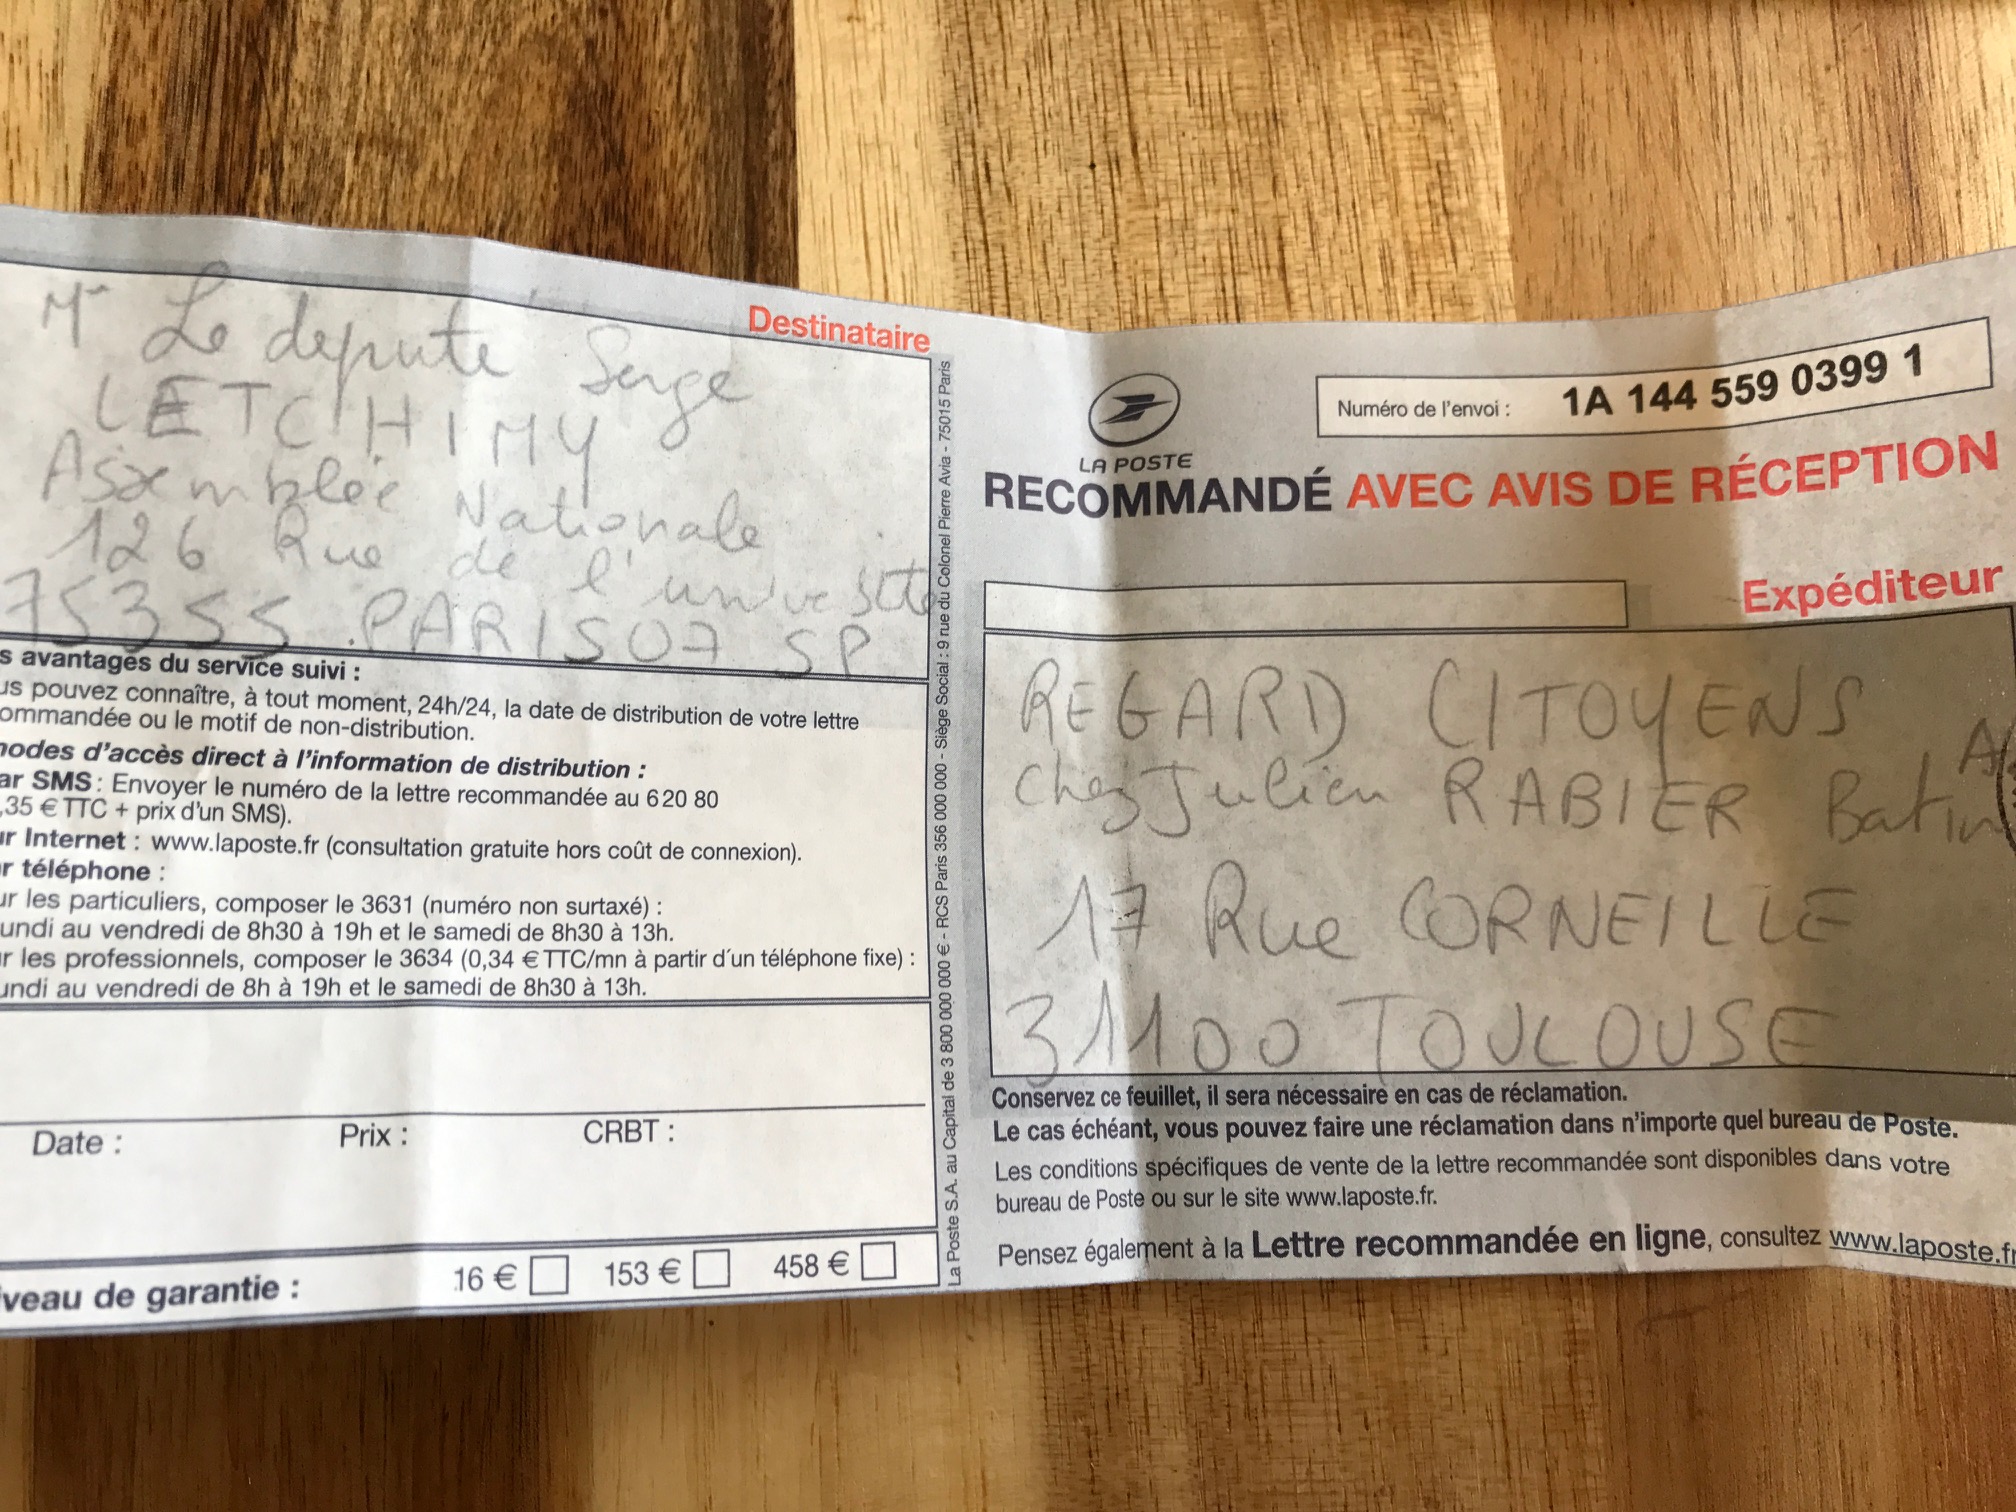 Destinataire
Mr Le député Serge
LETCHIMY
Assemblée Nationale
126 Rue de l'université
75355 PARIS 07 SP
s avantages du service suivi :
us pouvez connaître, à tout moment, 24h/24, la date de distribution de votre lettre
ommandée ou le motif de non-distribution.
nodes d'accès direct à l'information de distribution :
ar SMS : Envoyer le numéro de la lettre recommandée au 6 20 80
,35 € TTC + prix d'un SMS).
ar Internet : www.laposte.fr (consultation gratuite hors coût de connexion).
r téléphone :
ur les particuliers, composer le 3631 (numéro non surtaxé) :
undi au vendredi de 8h30 à 19h et le samedi de 8h30 à 13h.
r les professionnels, composer le 3634 (0,34 € TTC/mn à partir d'un téléphone fixe) :
undi au vendredi de 8h à 19h et le samedi de 8h30 à 13h.
Date : Prix : CRBT :
iveau de garantie : 16 € 153 € 458 €
La Poste S.A. au Capital de 3 800 000 000 € - RCS Paris 356 000 000 - Siège Social : 9 rue du Colonel Pierre Avia - 75015 Paris
LA POSTE
Numéro de l'envoi : 1A 144 559 0399 1
RECOMMANDÉ AVEC AVIS DE RÉCEPTION
Expéditeur
REGARD CITOYENS
chez Julien RABIER Bat A
17 Rue CORNEILLE
31100 TOULOUSE
Conservez ce feuillet, il sera nécessaire en cas de réclamation.
Le cas échéant, vous pouvez faire une réclamation dans n'importe quel bureau de Poste.
Les conditions spécifiques de vente de la lettre recommandée sont disponibles dans votre
bureau de Poste ou sur le site www.laposte.fr.
Pensez également à la Lettre recommandée en ligne, consultez www.laposte.fr